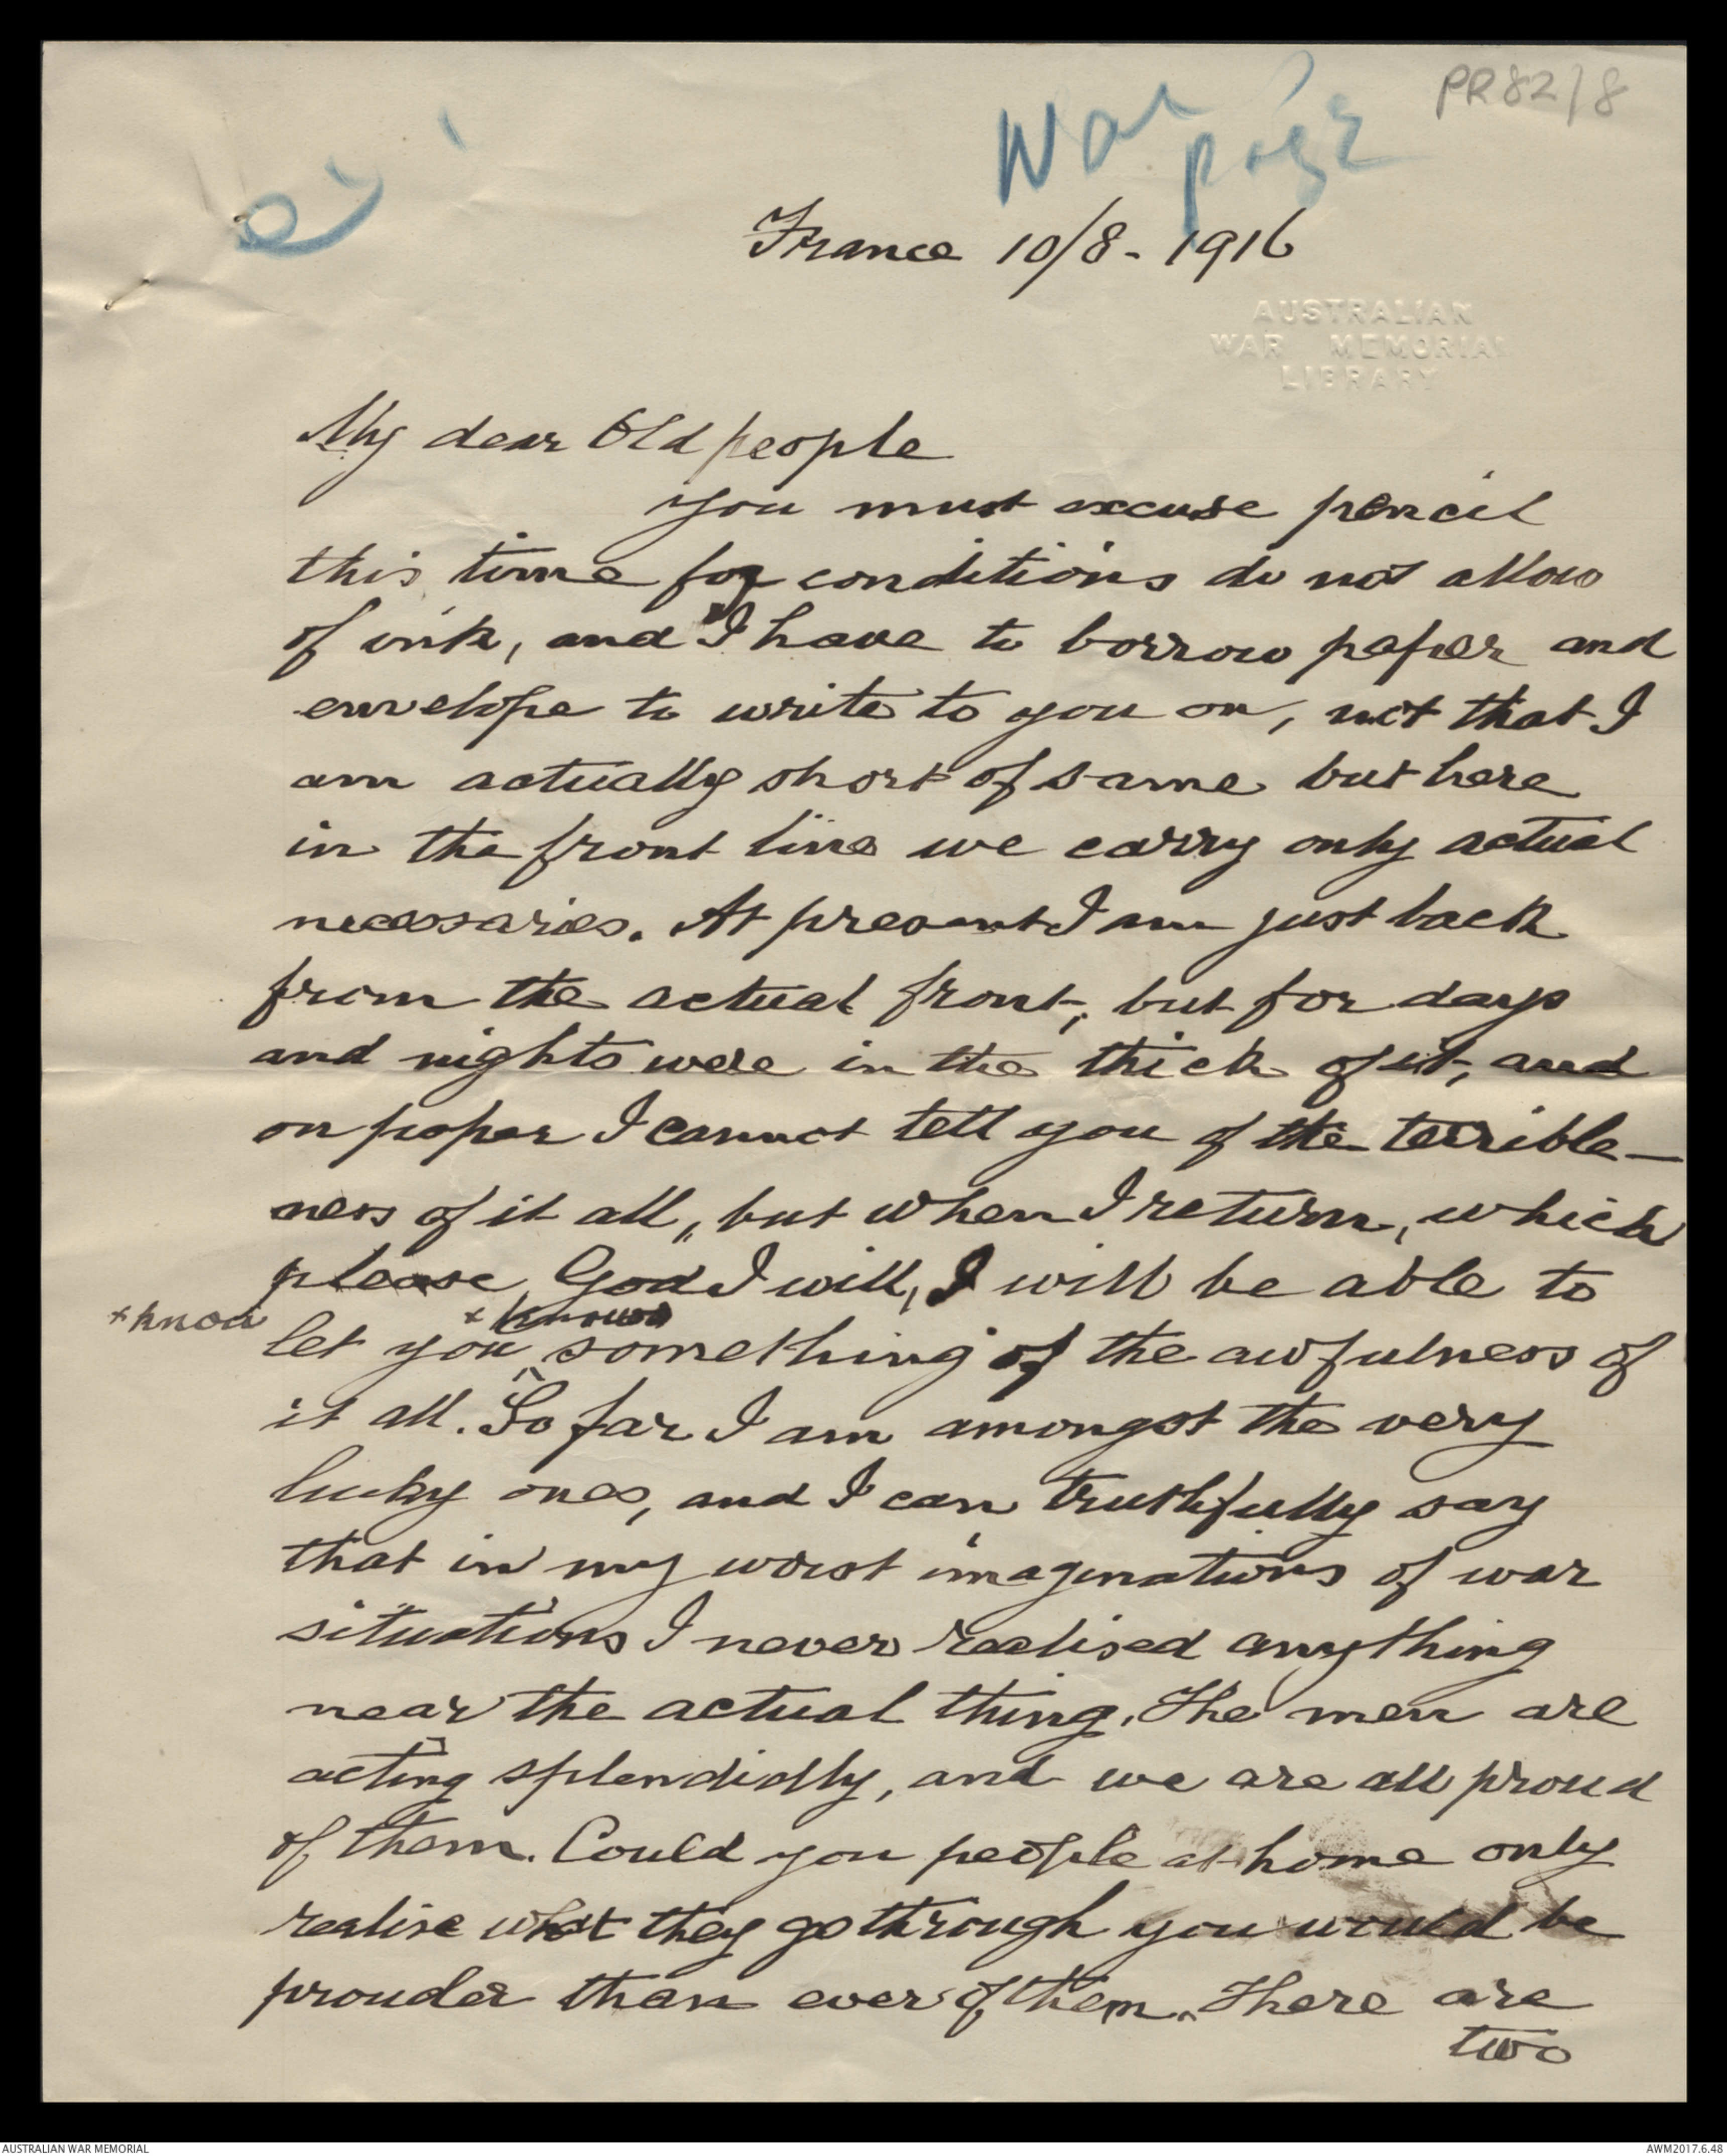 PR82/8
War page
France 10/8 - 1916
AUSTRALIAN
WAR MEMORIAL
LIBRARY
My dear Old people
you must excuse pencil
this time for conditions do not allow
of ink, and I have to borrow paper and
envelope to write to you on, not that I
am actually short of same but here
in the front line we carry only actual
necessaries. At present I am just back
from the actual front, but for days
and nights were in the thick of it, and
on paper I cannot tell you of the terrible-
ness of it all, but when I return, which
please God I will, I will be able to
+know + know
let you ^ something of the awfulness of
it all. So far I am amongst the very
lucky ones, and I can truthfully say
that in my worst imaginations of war
situations I never realised anything
near the actual thing. The men are
acting splendidly, and we are all proud
of them. Could you people at home only
realise what they go through you would be
prouder than ever of them. There are
two
AUSTRALIAN WAR MEMORIAL
AWM2017.6.48